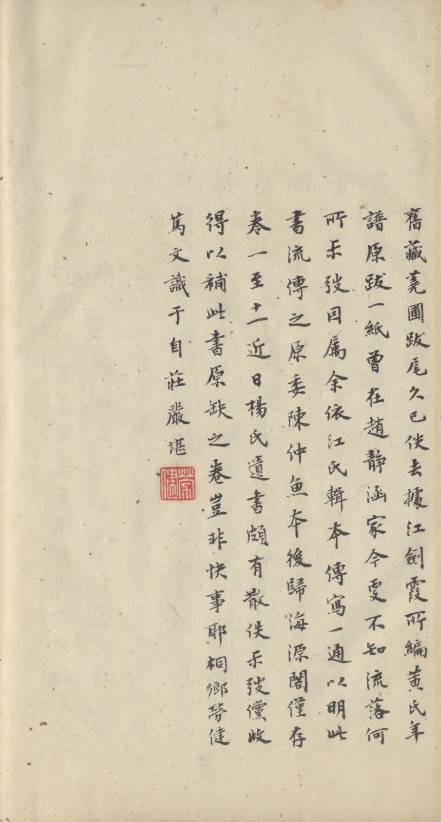 舊藏蕘圃跋尾久已佚去據江劍霞所編黃氏年
譜原跋一紙曾在趙靜涵家今更不知流落何
所弢因屬余依江氏輯本傳寫一通以明此
書流傳之原委陳仲魚本後歸海源閣僅存
卷一至十一近日楊氏遺書頗有散佚弢儻收
得以補此書原缺之卷豈非快事耶桐鄉勞健
篤文識于自莊嚴堪
勞健